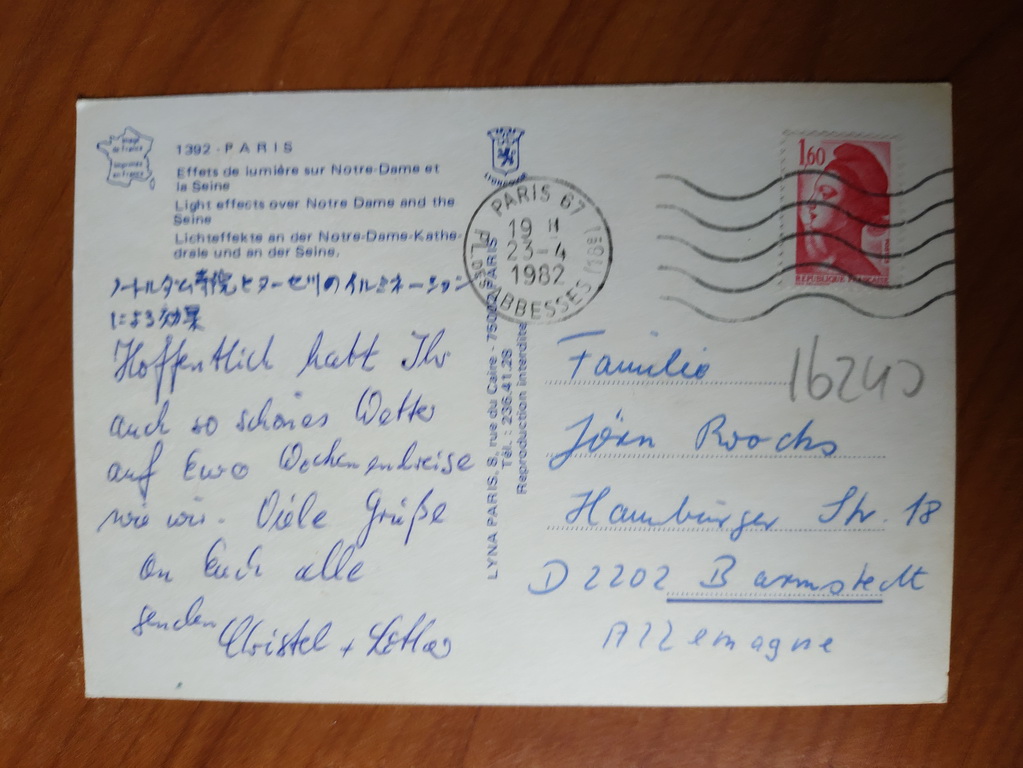 1392 - PARIS
Effets de lumière sur Notre-Dame et
la Seine
Light effects over Notre Dame and the
Seine
Lichteffekte an der Notre-Dame-Kathe-
drale und an der Seine.
ノートルダム寺院とヌーセ川のイルミネーション
による効果
Hoffentlich habt Ihr
auch so schönes Wetter
auf Eure Wochenendreise
wie wir. Viele Grüße
an Euch alle
senden
Christel + Lothar
LYNA PARIS, 8, rue du Caire - 75002 PARIS
Tél. : 236.41.28
Reproduction interdite
PARIS 67
19 H
23-4
1982
PL. DES ABBESSES (18E)
1,60
REPUBLIQUE FRANCAISE
16240
Familie
Jörn Roochs
Hamburger Str. 18
D 2202 Barmstedt
Allemagne